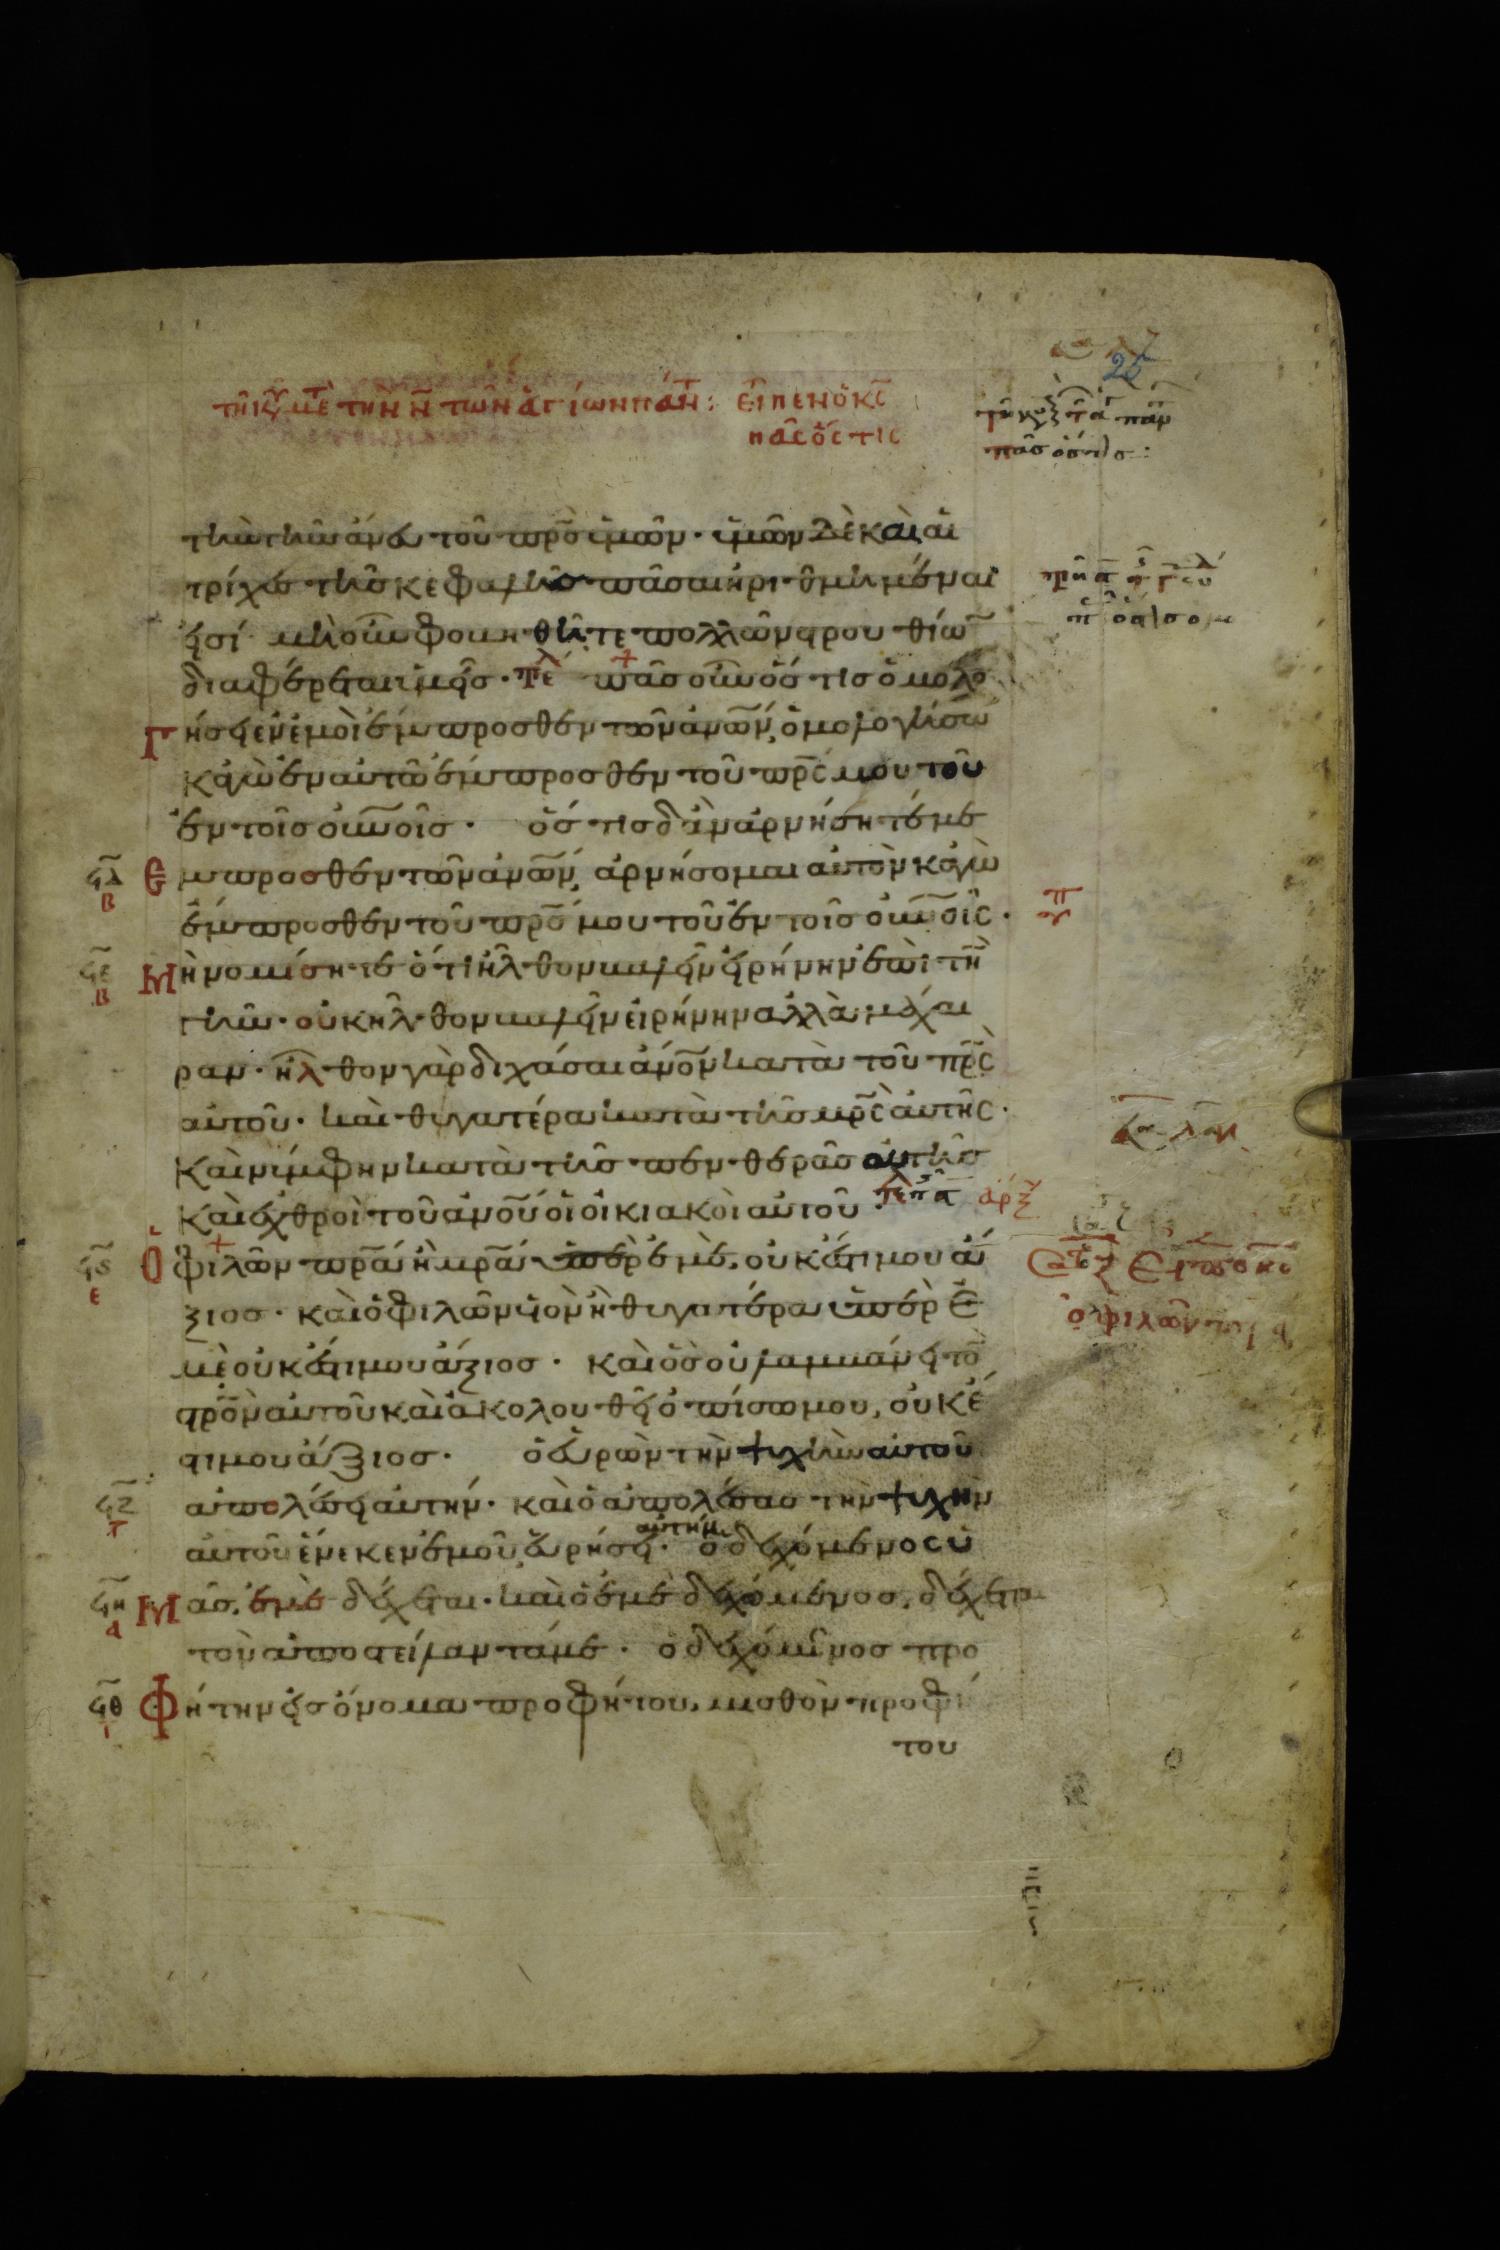 τῇ κυ μετ τὴν ν τῶν ἁγίων πάντ: εἶπεν ὁ κς
πᾶς ὅστις
πᾶσ ὅστισ:
25
την γῆν ἄνευ τοῦ πρσ ὑμῶν· ὑμῶν δὲ καὶ αἱ
τρίχεσ τῆσ κεφαλῆσ πᾶσαι ἠριθμημέναι
εἰσί μὴ οὖν φοβηθῆτε πολλῶν στρουθίων
διαφέρεται ὑμεῖσ· τε πᾶσ οὖν ὅστισ ὁμολο
Γήσει ἐν ἐμοὶ ἔμπροσθεν τῶν ἀνων, ὁμολογήσω
κἀγὼ ἐν αὐτῶ ἔμπροσθεν τοῦ πρς μου τοῦ
ἐν τοῖσ οὐνοῖσ· ὅστισ δ ἂν ἀρνήσητέ με
Ἐμπροσθεν τῶν ἀνων, ἀρνήσομαι αὐτὸν κἀγὼ
ἔμπροσθεν τοῦ πρσ μου τοῦ ἐν τοῖσ οὐνοῖς·
Μὴ νομίσητε ὅτι ἦλθον βαλεῖν εἰρήνην ἐπὶ τὴν
γῆν· οὐκ ἦλθον βαλεῖν εἰρήνην ἀλλὰ μάχαι
ραν· ἦλθον γὰρ διχάσαι ἀνον κατὰ τοῦ πρς
αὐτοῦ· καὶ θυγατέρα κατὰ τῆσ μρς αὐτῆς·
καὶ νύμφην κατὰ τῆσ πενθερᾶσ αὐτῆσ
καὶ ἐχθροὶ τοῦ ἀνου οἱ οἰκιακοὶ αὐτοῦ·
Ὁ φιλῶν πρα ἢ μρα ὑπὲρ ἐμὲ, οὐκ ἔστι μου ἄ
ξιοσ· καὶ ὁ φιλῶν υἱὸν ἢ θυγατέρα ὑπὲρ ἐ
μὲ οὐκ ἔστι μου ἄξιοσ· καὶ ὃσ οὐ λαμβάνει τὸν
στρον αὐτοῦ καὶ ἀκολουθεῖ ὀπίσω μου, οὐκ ἔ
στι μου ἄξιοσ· ὁ εὑρὼν τὴν ψυχὴν αὐτοῦ
ἀπολέσει αὐτήν· καὶ ὁ ἀπολέσασ τὴν ψυχὴν
αὐτοῦ ἕνεκεν ἐμοῦ, εὑρήσει αὐτήν· ὁ δεχόμενος ὑ
Μᾶσ, ἐμὲ δέχεται· καὶ ὁ ἐμὲ δεχόμενοσ, δέχεται
τὸν ἀποστείλαντά με· ὁ δεχόμενοσ προ
Φήτην εἰσ ὄνομα προφήτου, μισθὸν προφή
του